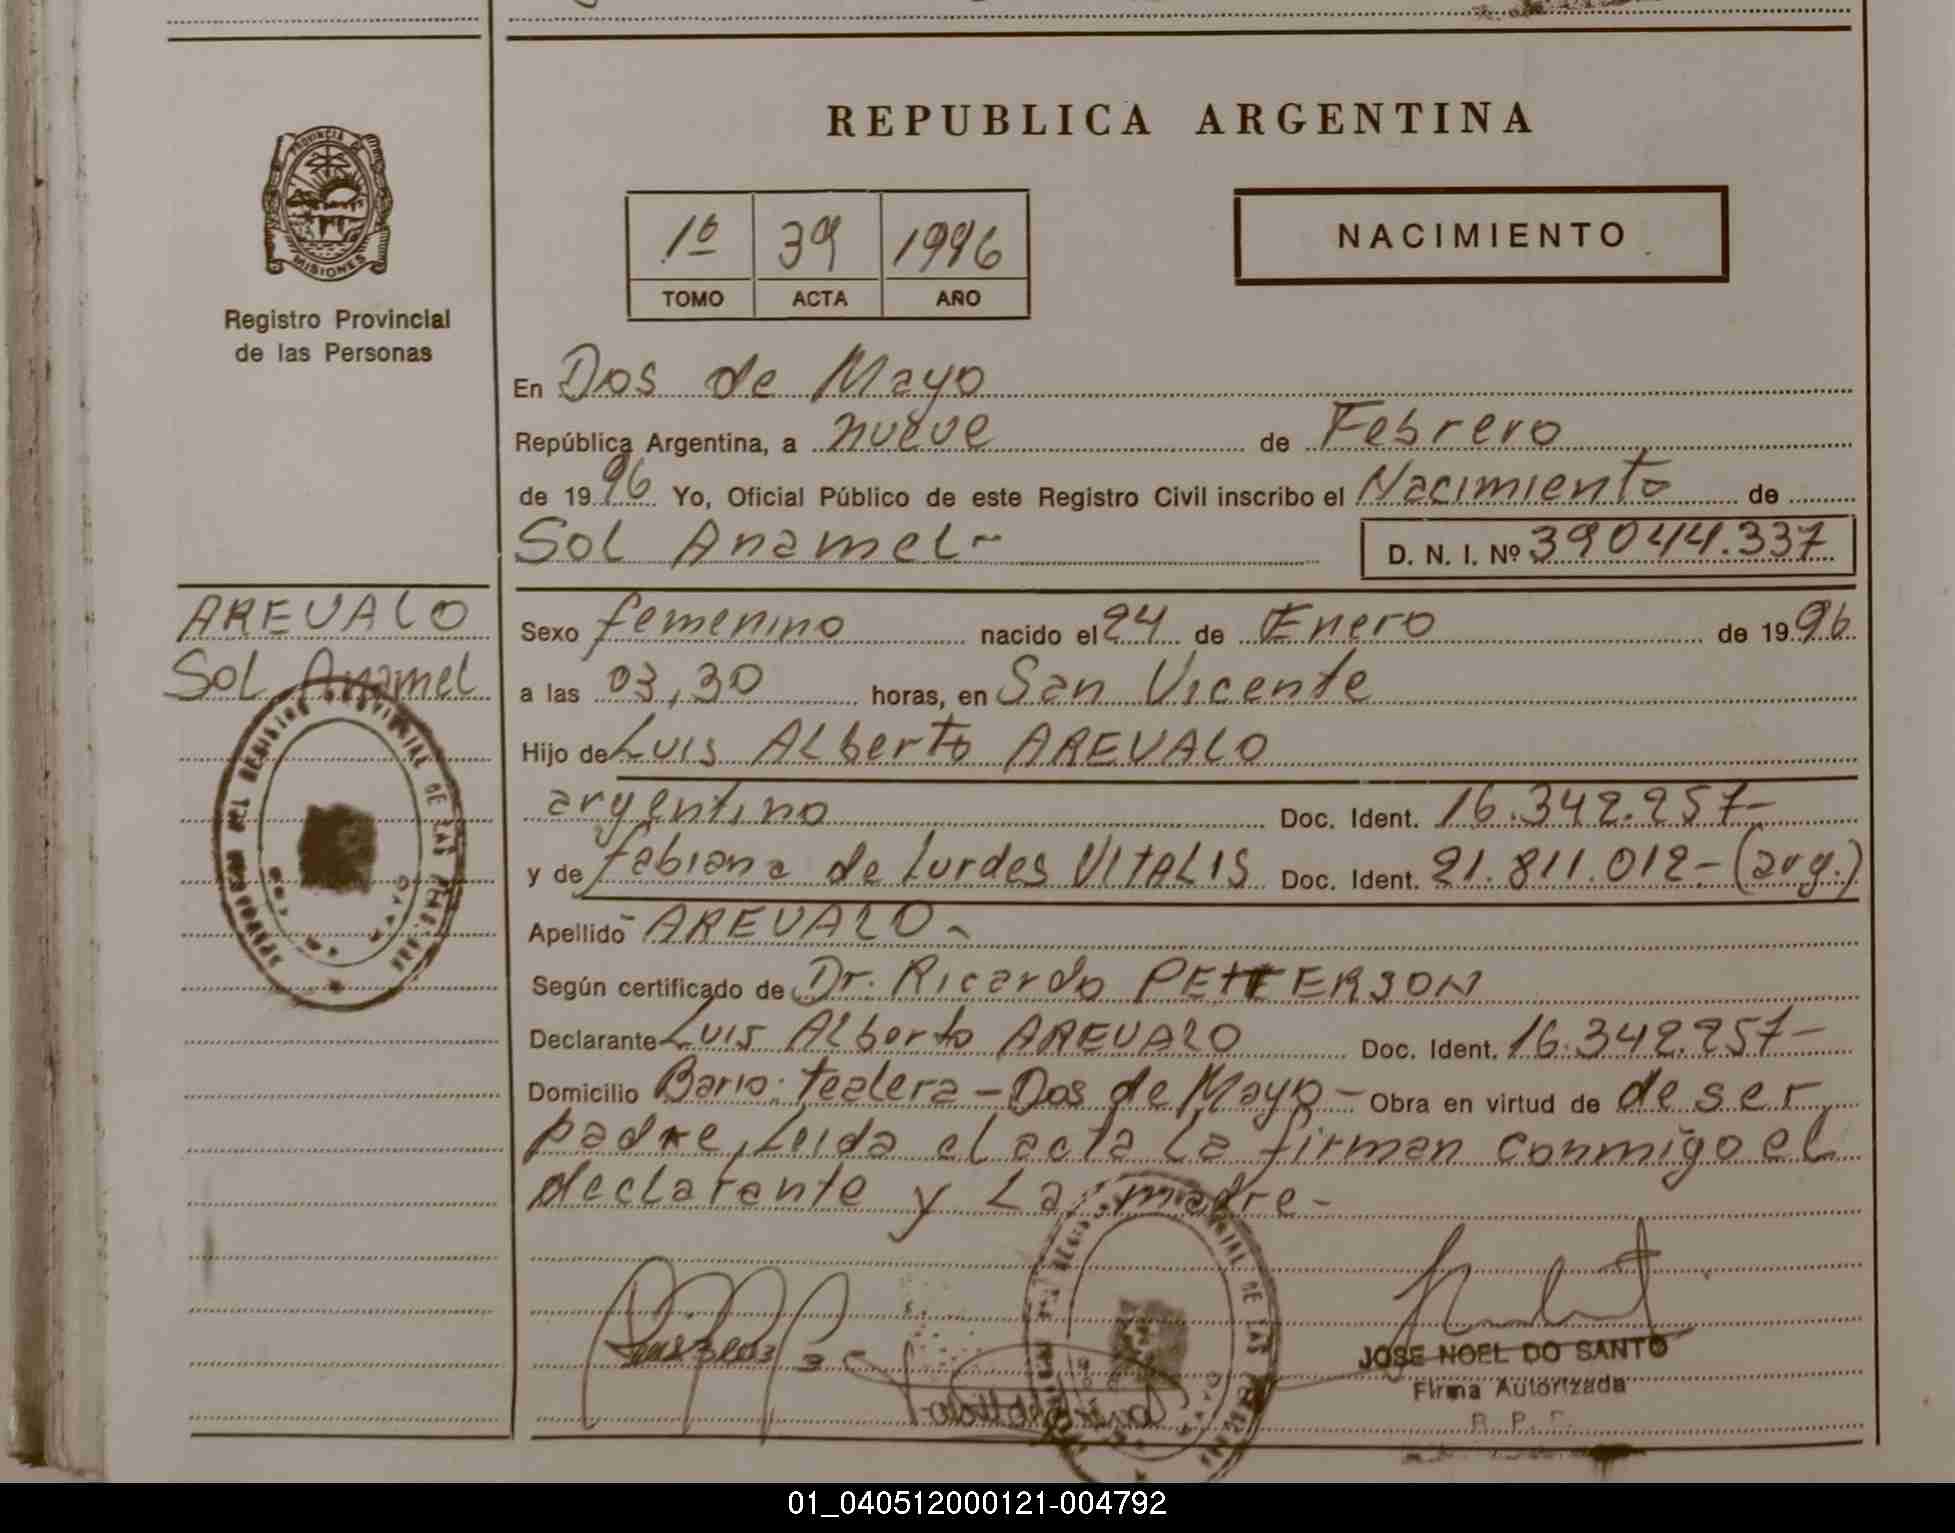 REPUBLICA ARGENTINA
PROVINCIA DE
MISIONES
Registro Provincial
de las Personas
1º 39 1996
TOMO ACTA AÑO
NACIMIENTO
En Dos de Mayo
República Argentina, a nueve de Febrero
de 1996 Yo, Oficial Público de este Registro Civil inscribo el Nacimiento de
Sol Anamel- D. N. I. Nº 39044.337
AREVALO
Sol Anamel
Sexo femenino nacido el 24 de Enero de 1996
a las 03,30 horas, en San Vicente
Hijo de Luis Alberto AREVALO
argentino Doc. Ident. 16.342.257-
y de fabiana de Lurdes VITALIS Doc. Ident. 21.811.012-(arg.)
Apellido AREVALO-
Según certificado de Dr. Ricardo PETTERSON
Declarante Luis Alberto AREVALO Doc. Ident. 16.342.257-
Domicilio Bario: tealera-Dos de Mayo- Obra en virtud de de ser
padre, Leida el acta La firman conmigo el
declarante y La madre-
JOSE NOEL DO SANTO
Firma Autorizada
R. P. P.
01_040512000121-004792